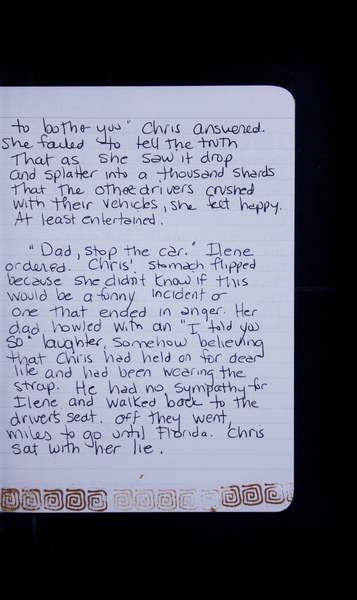 to bother you" Chris answered.
She failed to tell the truth
That as she saw it drop
and splatter into a thousand shards
That the other drivers crushed
with their vehicles, she felt happy.
At least entertained.
"Dad, stop the car." Ilene
ordered. Chris' stomach flipped
because she didn't know if this
would be a funny incident or
one that ended in anger. Her
dad howled with an "I told you
so" laughter, somehow believing
that Chris had held on for dear
life and had been wearing the
strap. He had no sympathy for
Ilene and walked back to the
driver's seat. Off they went,
miles to go until Florida. Chris
sat with her lie.